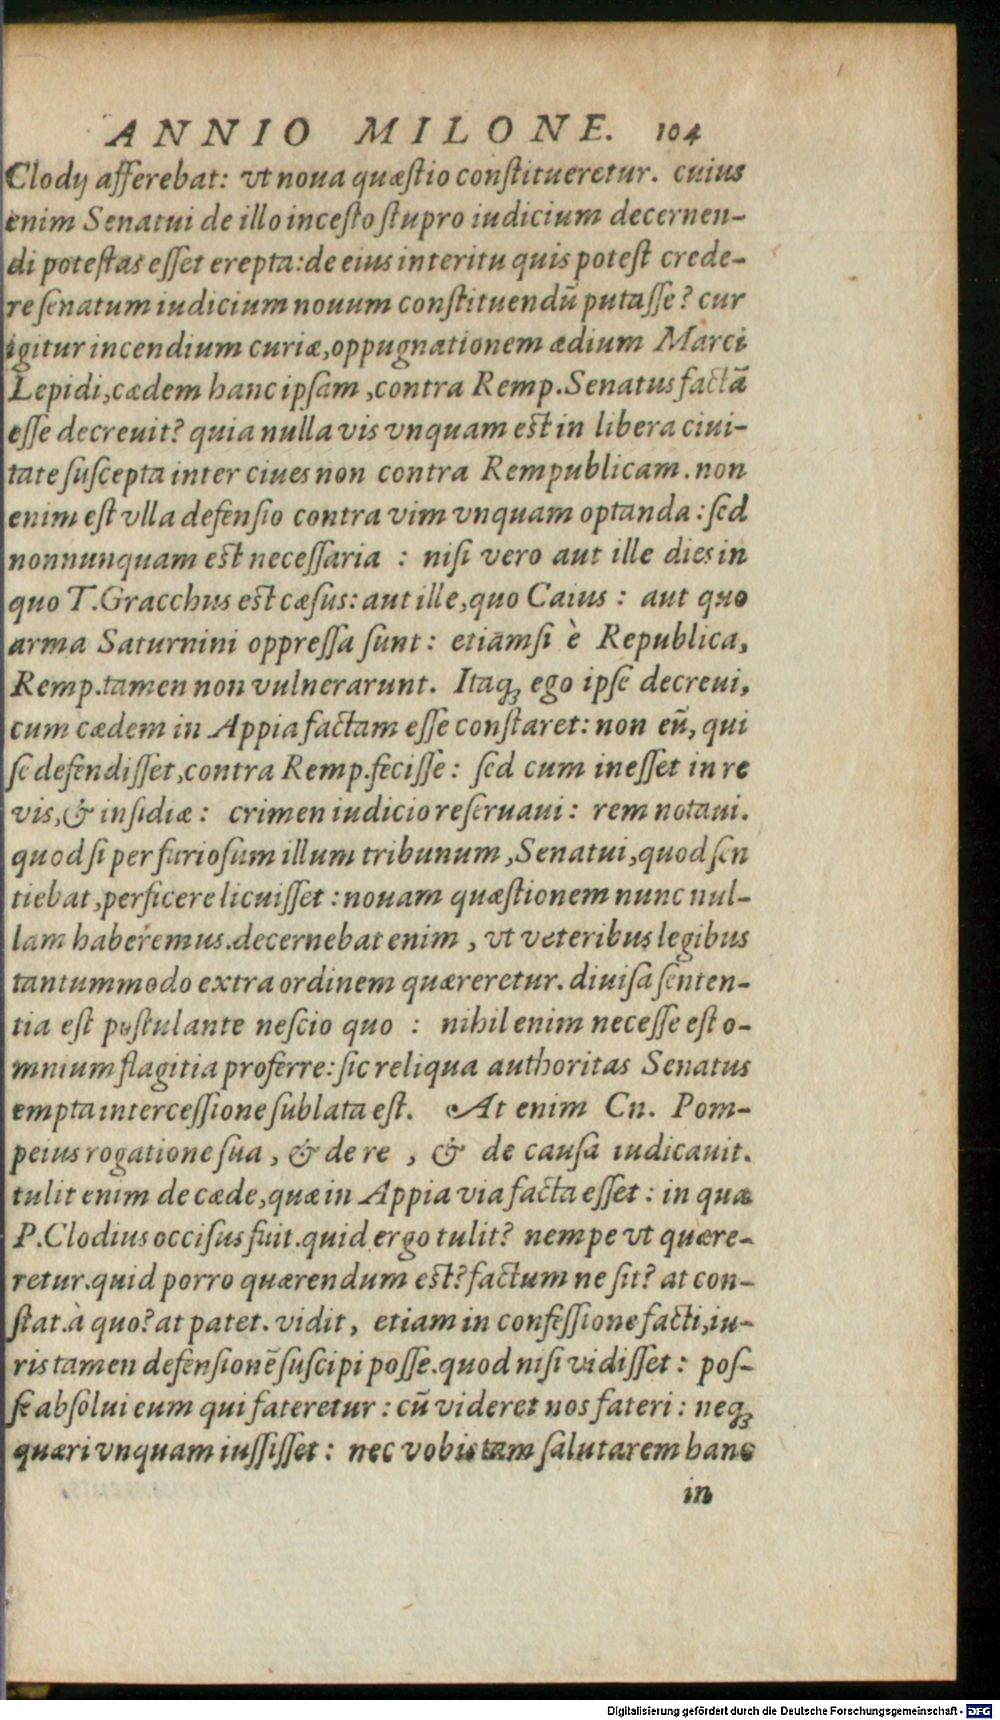 ANNIO MILONE. 104
Clodij afferebat: vt noua quæstio constitueretur. cuius
enim Senatui de illo incesto stupro iudicium decernen-
di potestas esset erepta: de eius interitu quis potest crede-
re senatum iudicium nouum constituendũ putasse? cur
igitur incendium curiæ, oppugnationem ædium Marci
Lepidi, cædem hanc ipsam, contra Remp. Senatus factã
esse decreuit? quia nulla vis vnquam est in libera ciui-
tate suscepta inter ciues non contra Rempublicam. non
enim est vlla defensio contra vim vnquam optanda: sed
nonnunquam est necessaria : nisi vero aut ille dies in
quo T. Gracchus est cæsus: aut ille, quo Caius : aut quo
arma Saturnini oppressa sunt: etiamsi è Republica,
Remp. tamen non vulnerarunt. Itaqꝫ ego ipse decreui,
cum cædem in Appia factam esse constaret: non eũ, qui
se defendisset, contra Remp. fecisse: sed cum inesset in re
vis, & insidiæ : crimen iudicio reseruaui: rem notaui.
quod si per furiosum illum tribunum, Senatui, quod sen
tiebat, perficere licuisset: nouam quæstionem nunc nul-
lam haberemus. decernebat enim, vt veteribus legibus
tantummodo extra ordinem quæreretur. diuisa senten-
tia est postulante nescio quo : nihil enim necesse est o-
mnium flagitia proferre: sic reliqua authoritas Senatus
empta intercessione sublata est. At enim Cn. Pom-
peius rogatione sua, & de re , & de causa iudicauit.
tulit enim de cæde, quæ in Appia via facta esset: in qua
P. Clodius occisus fuit. quid ergo tulit? nempe vt quære-
retur. quid porro quærendum est? factum ne sit? at con-
stat. à quo? at patet. vidit, etiam in confessione facti, iu-
ris tamen defensionẽ suscipi posse. quod nisi vidisset: pos-
se absolui eum qui fateretur: cũ videret nos fateri: neqꝫ
quæri vnquam iussisset: nec vobis tam salutarem hanc
in
Digitalisierung gefördert durch die Deutsche Forschungsgemeinschaft - DFG